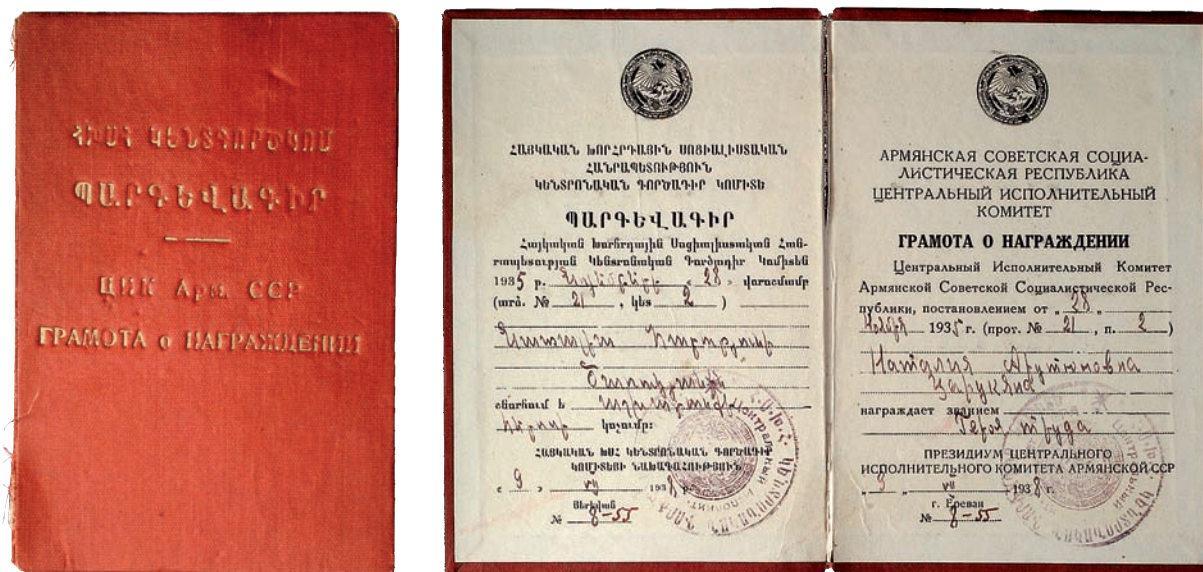 ՀԽՍՀ ԿԵՆՏԳՈՐԾԿՈՄ
ՊԱՐԳԵՎԱԳԻՐ
ЦИК Арм ССР
ГРАМОТА о НАГРАЖДЕНИИ
ՀԱՅԿԱԿԱՆ ԽՈՐՀՐԴԱՅԻՆ ՍՈՑԻԱԼԻՍՏԱԿԱՆ
ՀԱՆՐԱՊԵՏՈՒԹՅՈՒՆ
ԿԵՆՏՐՈՆԱԿԱՆ ԳՈՐԾԱԴԻՐ ԿՈՄԻՏԵ
ՊԱՐԳԵՎԱԳԻՐ
Հայկական Խորհրդային Սոցիալիստական Հան-
րապետության Կենտրոնական Գործադիր Կոմիտեն
1935 թ. « 28 » վորոշմամբ
(արձ. № 21 , կետ 2 )
շնորհում է
կոչումը:
ՀԱՅԿԱԿԱՆ ԽՍՀ ԿԵՆՏՐՈՆԱԿԱՆ ԳՈՐԾԱԴԻՐ
ԿՈՄԻՏԵՅԻ ՆԱԽԱԳԱՀՈՒԹՅՈՒՆ
« 9 » VII 1938 թ.
Յերևան
№ 8-55
АРМЯНСКАЯ СОВЕТСКАЯ СОЦИА-
ЛИСТИЧЕСКАЯ РЕСПУБЛИКА
ЦЕНТРАЛЬНЫЙ ИСПОЛНИТЕЛЬНЫЙ
КОМИТЕТ
ГРАМОТА О НАГРАЖДЕНИИ
Центральный Исполнительный Комитет
Армянской Советской Социалистической Рес-
публики, постановлением от „ 28 "
Ноября 1935 г. (прот. № 21 , п. 2 )
Наталия Арутюновна
Царукяна
награждает званием
Героя труда
ПРЕЗИДИУМ ЦЕНТРАЛЬНОГО
ИСПОЛНИТЕЛЬНОГО КОМИТЕТА АРМЯНСКОЙ ССР
„ 9 " VII 1938 г.
г. Ереван
№ 8-55